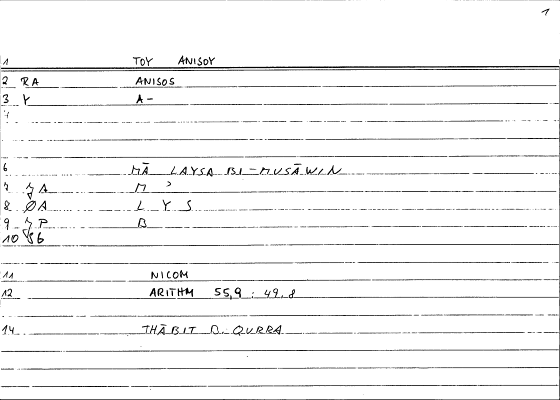 1
1 TOY ANISOY
2 RA ANISOS
3 Y A-
4
6 MĀ LAYSA BI-MUSĀWIN
7 ʒA M ʾ
8 ØA L Y S
9 ʒP B
10 §6
11 NICOM
12 ARITHM 55,9 : 49,8
14 THĀBIT B. QURRA